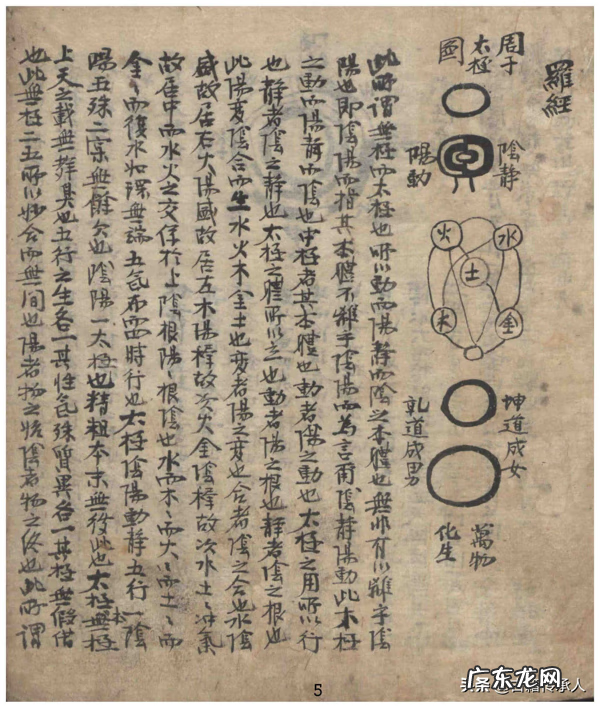 羅經
周子
太極
圖
陰静
陽動
水
火
土
金
木
坤道成女
乾道成男
萬物
化生
此所謂無極而太極也所以動而陽静而陰之本體也無非有以離乎陰
陽也即陰陽而指其本體不離乎陰陽而為言爾陰静陽動此木極
之動而陽静而陰也中極者其本體也動者陽之動也太極之用所以行
也静者陰之静也太極之體所以立也動者陽之根也静者陰之根也
此陽变陰合而生水火木金土也变者陽之变也合者陰之合也水陰
盛故居右火陽盛故居左木陽穉故次火金陰穉故次水土冲氣
故居中而水火之交係於上陰根陽〻根陰也水而木〻而火〻而土〻而
金〻而復水如環無端五氣布而四時行也太極陰陽動静五行一陰
陽五殊二实無餘欠也陰陽一太極也精粗本末無彼此也太極本無極
上天之載無聲臭也五行之生各一其性氣殊質異各一其極無假借
也此無極二五所以妙合而無间也陽者物之始陰者物之终也此所謂
5
广东龙网